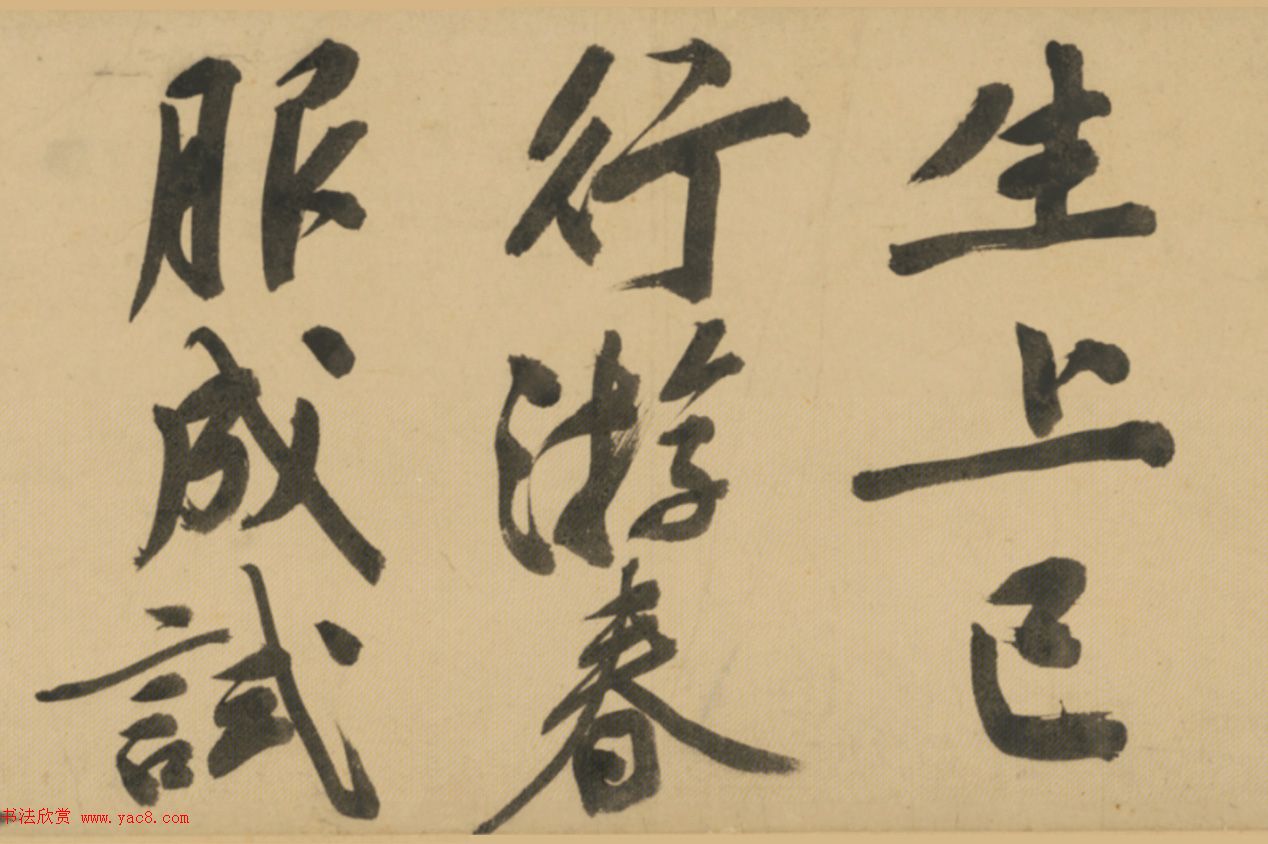 生上巳
行游春
服成試
书法欣赏 www.yac8.com